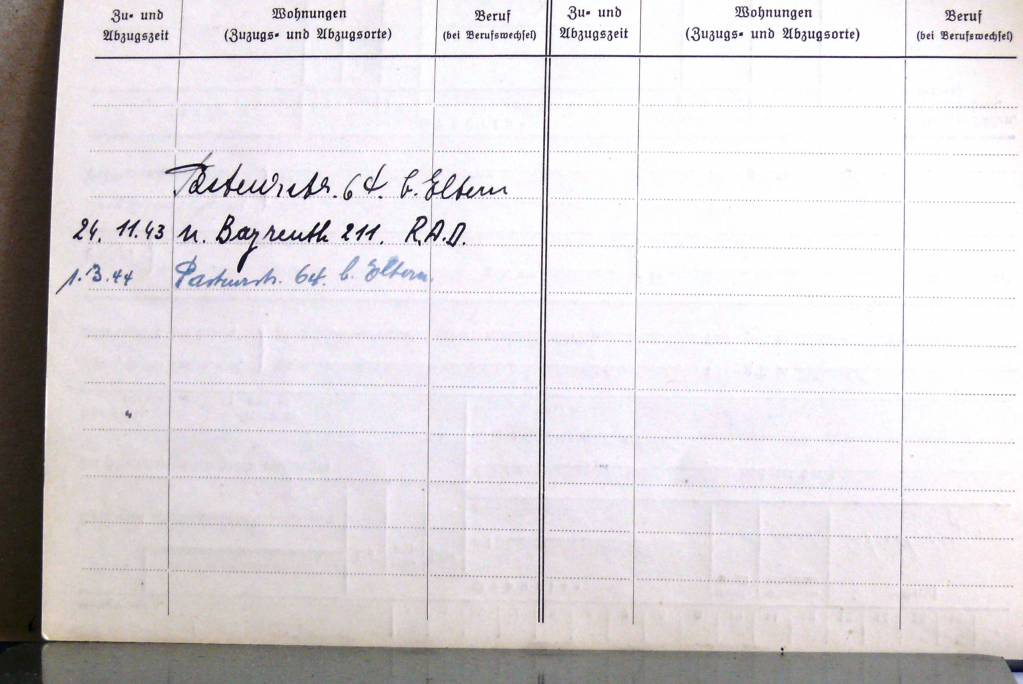 Zu- und Abzugszeit
Wohnungen (Zuzugs- und Abzugsorte)
Beruf (bei Berufswechsel)
Zu- und Abzugszeit
Wohnungen (Zuzugs- und Abzugsorte)
Beruf (bei Berufswechsel)
Pasteurstr. 64. b. Eltern
24. 11.43 n. Bayreuth 211. R.A.D.
1.3.44 Pasteurstr. 64. b. Eltern.